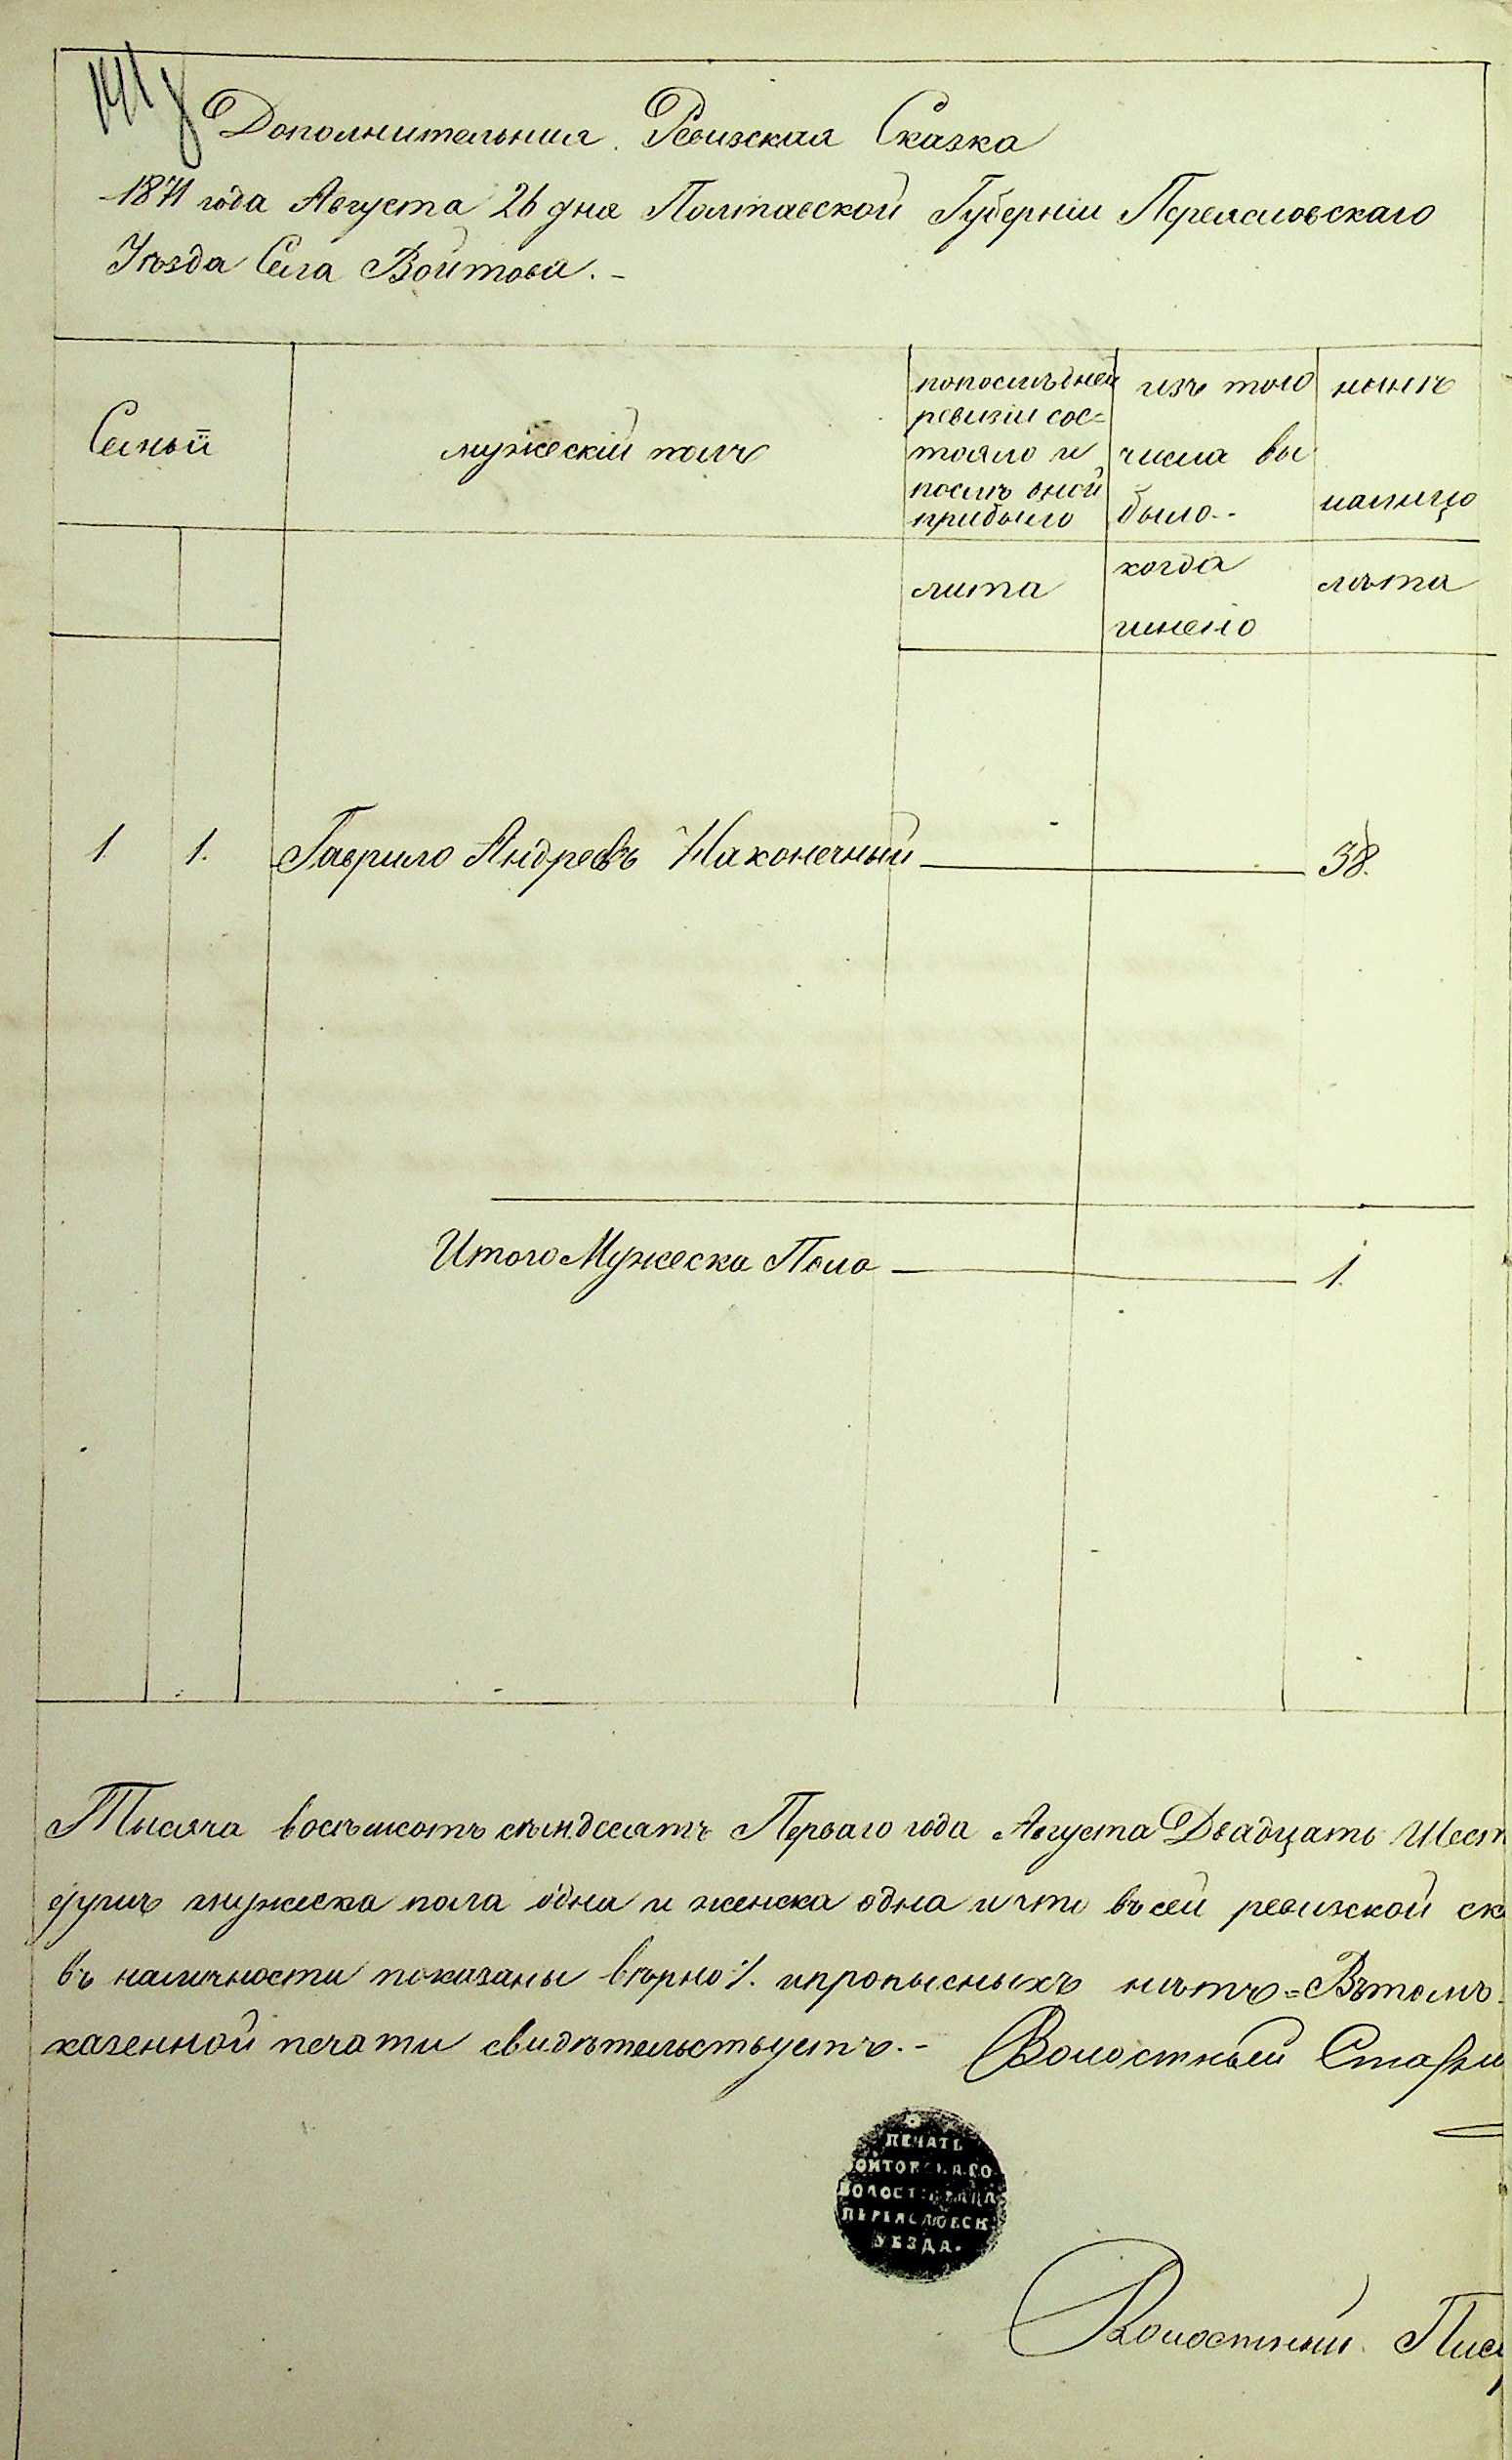 Дополнительная Ревизская Сказка
1871 года Августа 26 дня Полтавской Губерніи Переясловскаго
Уѣзда Села Войтова.-
Семьи
мужескій полъ
попослѣдней
ревизіи сос=
тояло и
послѣ оной
прибыло
изъ того
числа вы
было.-
нынѣ
налицо
лита
когда
имено
лѣта
1 1. Гаврило Андреевъ Наконечный 38.
Итого Мужеска Пола 1.
Тысяча восемсотъ семдесятъ Перваго года Августа Двадцать Шест
душъ мужеска пола одна и женска одна и что въ сей ревизской ск
въ наличности показаны вѣрно и пропысныхъ нѣтъ = Вътомъ
казенной печати свидѣтельствуетъ.- Волостный Старш
ПЕЧАТЬ
ОЙТОВСКАГО
ВОЛОСТ
ПЕРЕЯСЛОВСК.
УЕЗДА.
Волостный Пис